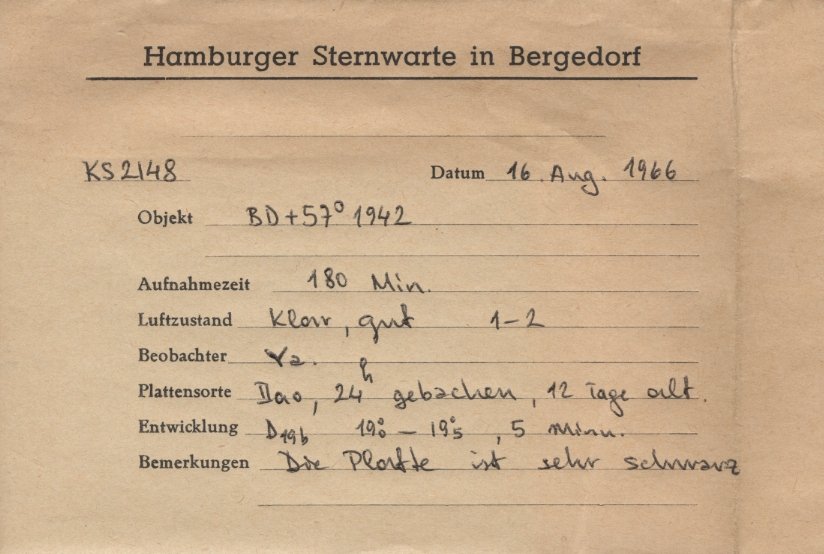 Hamburger Sternwarte in Bergedorf
KS 2148 Datum 16. Aug. 1966
Objekt BD+57° 1942
Aufnahmezeit 180 Min.
Luftzustand Klar, gut 1–2
Beobachter
Plattensorte IIao, 24h gebacken, 12 Tage alt.
Entwicklung D19b 19°0 – 19°5, 5 Minu.
Bemerkungen Die Platte ist sehr schwarz